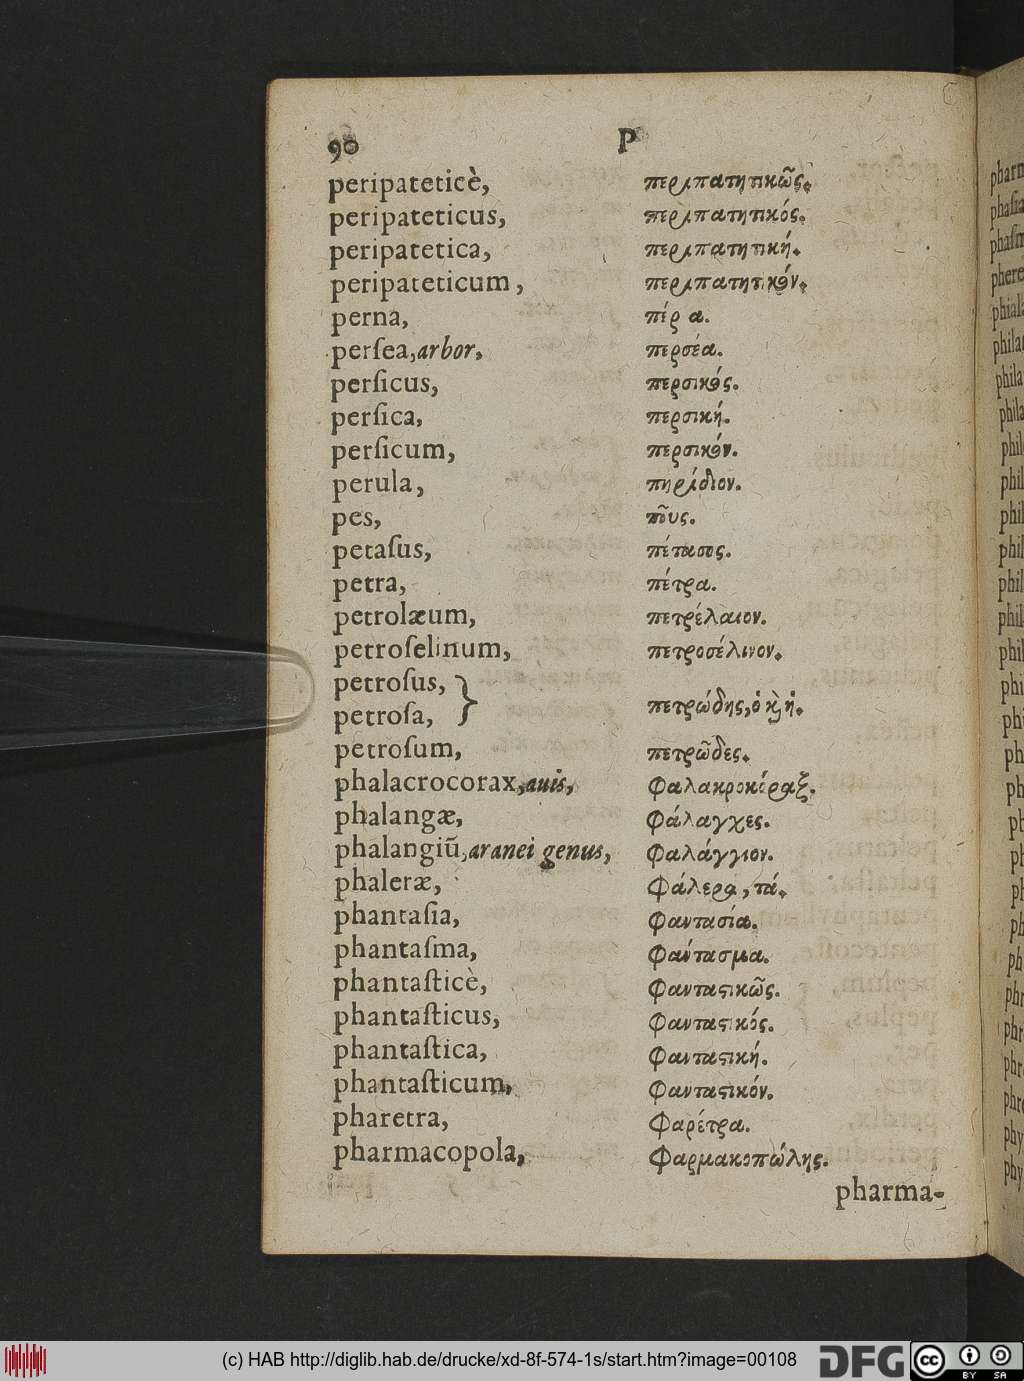 90 P
peripateticè, περιπατητικῶς.
peripateticus, περιπατητικός.
peripatetica, περιπατητική.
peripateticum, περιπατητικόν.
perna, πέρ α.
perſea, arbor, περσέα.
perſicus, περσικός.
perſica, περσική.
perſicum, περσικόν.
perula, πηρίδιον.
pes, ποῦς.
petaſus, πέτασος.
petra, πέτρα.
petrolæum, πετρέλαιον.
petroſelinum, πετροσέλινον.
petroſus,
petroſa, } πετρώδης, ὁ κὶ ἡ.
petroſum, πετρῶδες.
phalacrocorax, auis, φαλακροκόραξ.
phalangæ, φάλαγχες.
phalangiū, aranei genus, φαλάγγιον.
phaleræ, φάλερα, τά.
phantaſia, φαντασία.
phantaſma, φάντασμα.
phantaſticè, φανταςικῶς.
phantaſticus, φανταςικός.
phantaſtica, φανταςική.
phantaſticum, φανταςικόν.
pharetra, φαρέτρα.
pharmacopola, φαρμακοπώλης.
pharma-
(c) HAB http://diglib.hab.de/drucke/xd-8f-574-1s/start.htm?image=00108
DFG
cc BY SA